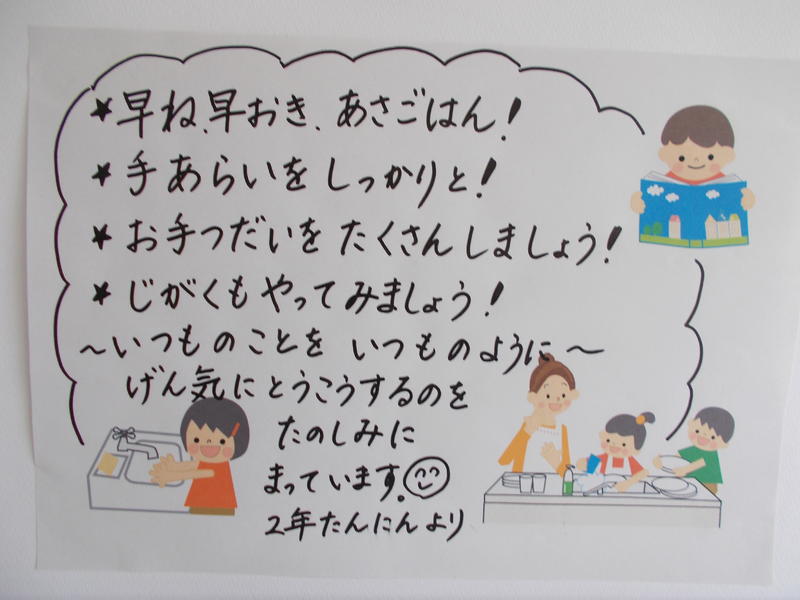 ★早ね、早おき、あさごはん！
★手あらいをしっかりと！
★お手つだいをたくさんしましょう！
★じがくもやってみましょう！
～いつものことをいつものように～
げん気にとうこうするのを
たのしみに
まっています。
2年たんにんより